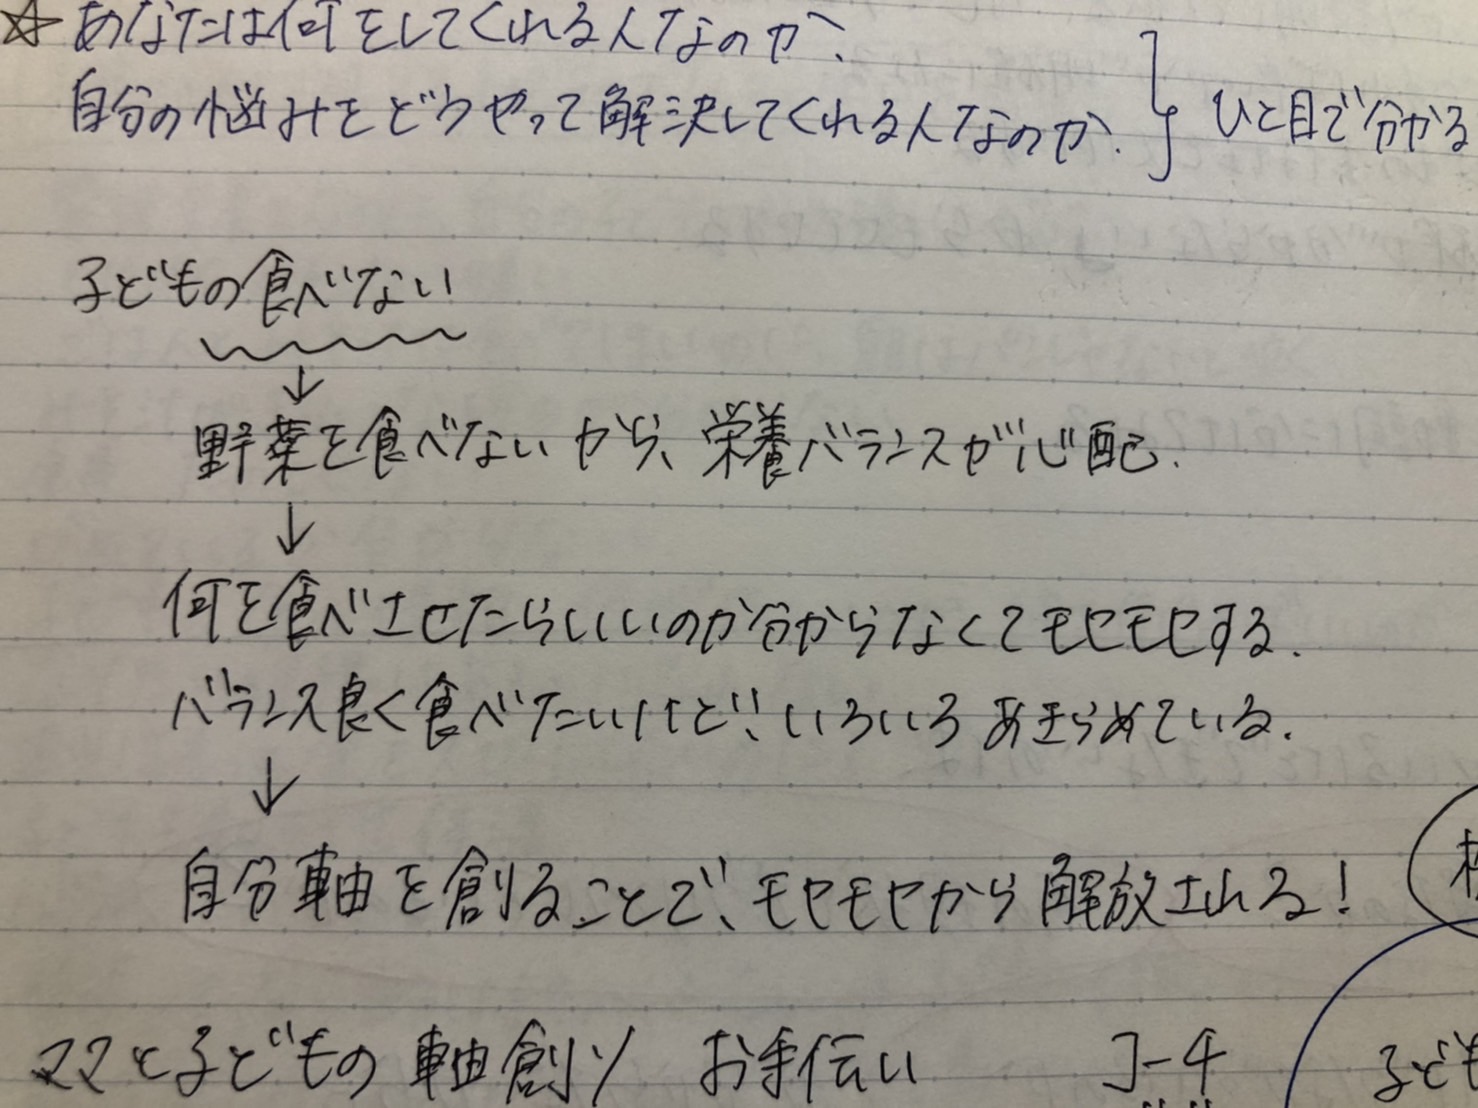 ☆ あなたは何をしてくれる人なのか、
自分の悩みをどうやって解決してくれる人なのか、 ひと目で分かる
子どもの食べない
↓
野菜を食べないから、栄養バランスが心配.
↓
何を食べさせたらいいのか分からなくてモヤモヤする.
バランス良く食べたいけど、いろいろあきらめている.
↓
自分軸を創ることで、モヤモヤから解放される!
ママと子どもの軸創り お手伝い コーチ 子ども